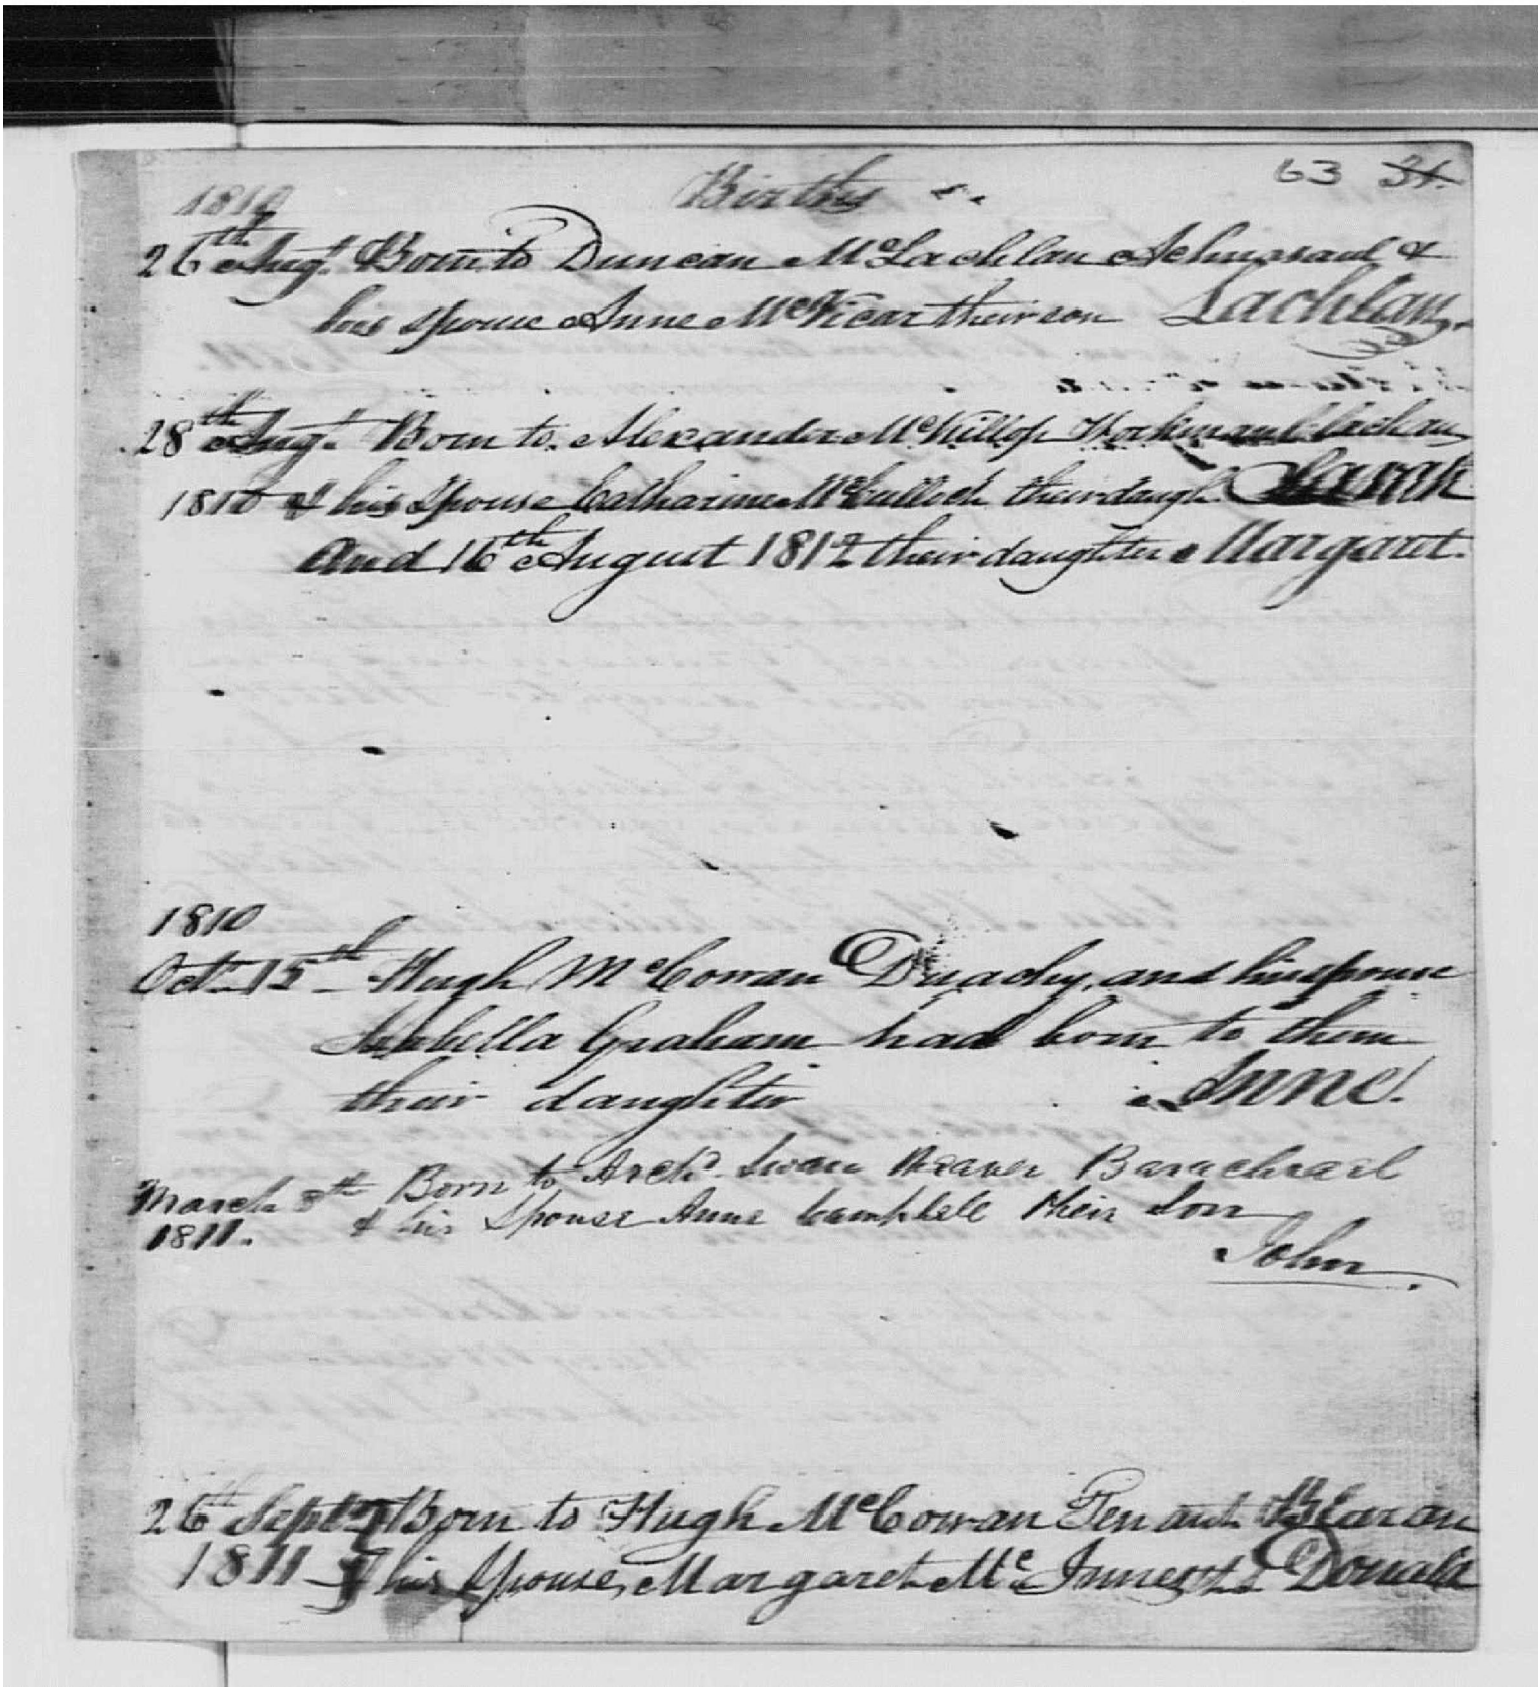 63 34.
1810 Births
26th Augt. Born to Duncan McLachlan Achnasaul &
his spouse Anne McVicar their son Lachlan.
28th Augt. Born to Alexander McKillop Workman
1810 & his Spouse Catharine McCulloch their daugh. Sarah
And 16th August 1812 their daughter Margaret.
1810
Octr. 15th Hugh McCowan Duachy, and his spouse
Isabella Graham had born to them
their daughter Anne.
March 8th Born to Archd. Swan Weaver
1811. & his Spouse Anne Campbell their Son
John
26th Septr. Born to Hugh McCowan Tenant Blaran
1811 & his Spouse, Margaret McInnes Donald